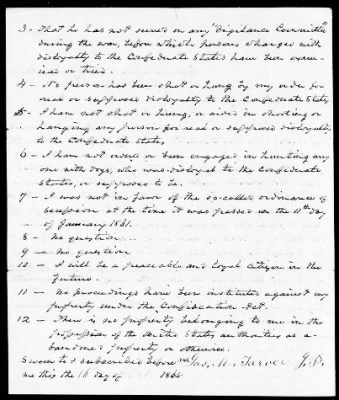 3 - That he has not served on any Vigilance Committee
during the war, before which persons charged with
disloyalty to the Confederate States have been exam-
ined or tried.
4 - No person has been shot or hung by my order for
real or supposed disloyalty to the Confederate States
5 - I am not shot or hung, or aided in shooting or
hanging any person for real or supposed disloyalty
to the Confederate States,
6 - I have not ordered or been engaged in hunting any
one with dogs, who was disloyal to the Confederate
States, or supposed to be.
7 - I was not in favor of the so-called ordinance of
secession at the time it was passed on the 11th day
of January 1861.
8 - No question
9 - No question
10 - I will be a peaceable and loyal citizen in the
future.
11 - No proceedings have been instituted against my
property under the Confiscation Act.
12 - There is no property belonging to me in the
possession of the United States authorities as a-
bandoned property or otherwise.
Sworn to & subscribed before me Jas. M. Tarver J.P.
me this the 16 day of 1865